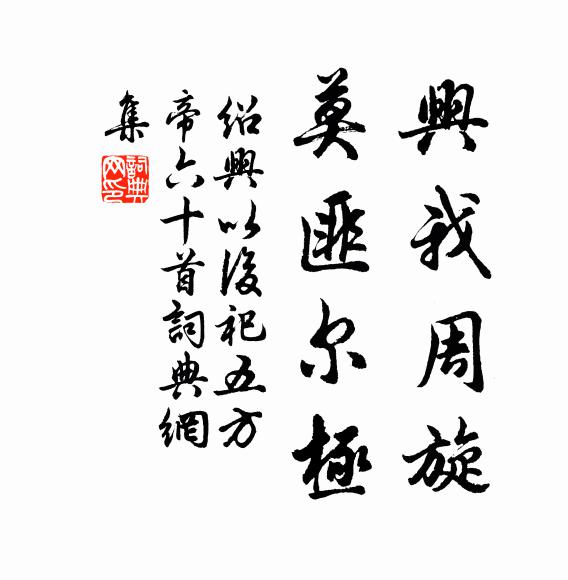 興我周旋
莫匪尔極
绍興以後祀五方
帝六十首詞典網
集
詞典
网印